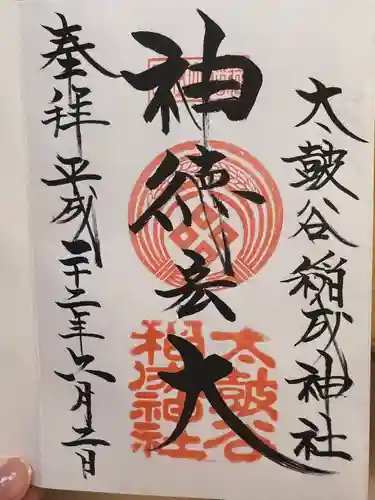 太皷谷稲成神社
神徳宏大
奉拝 平成二十二年六月二日
太皷谷
稲成神社